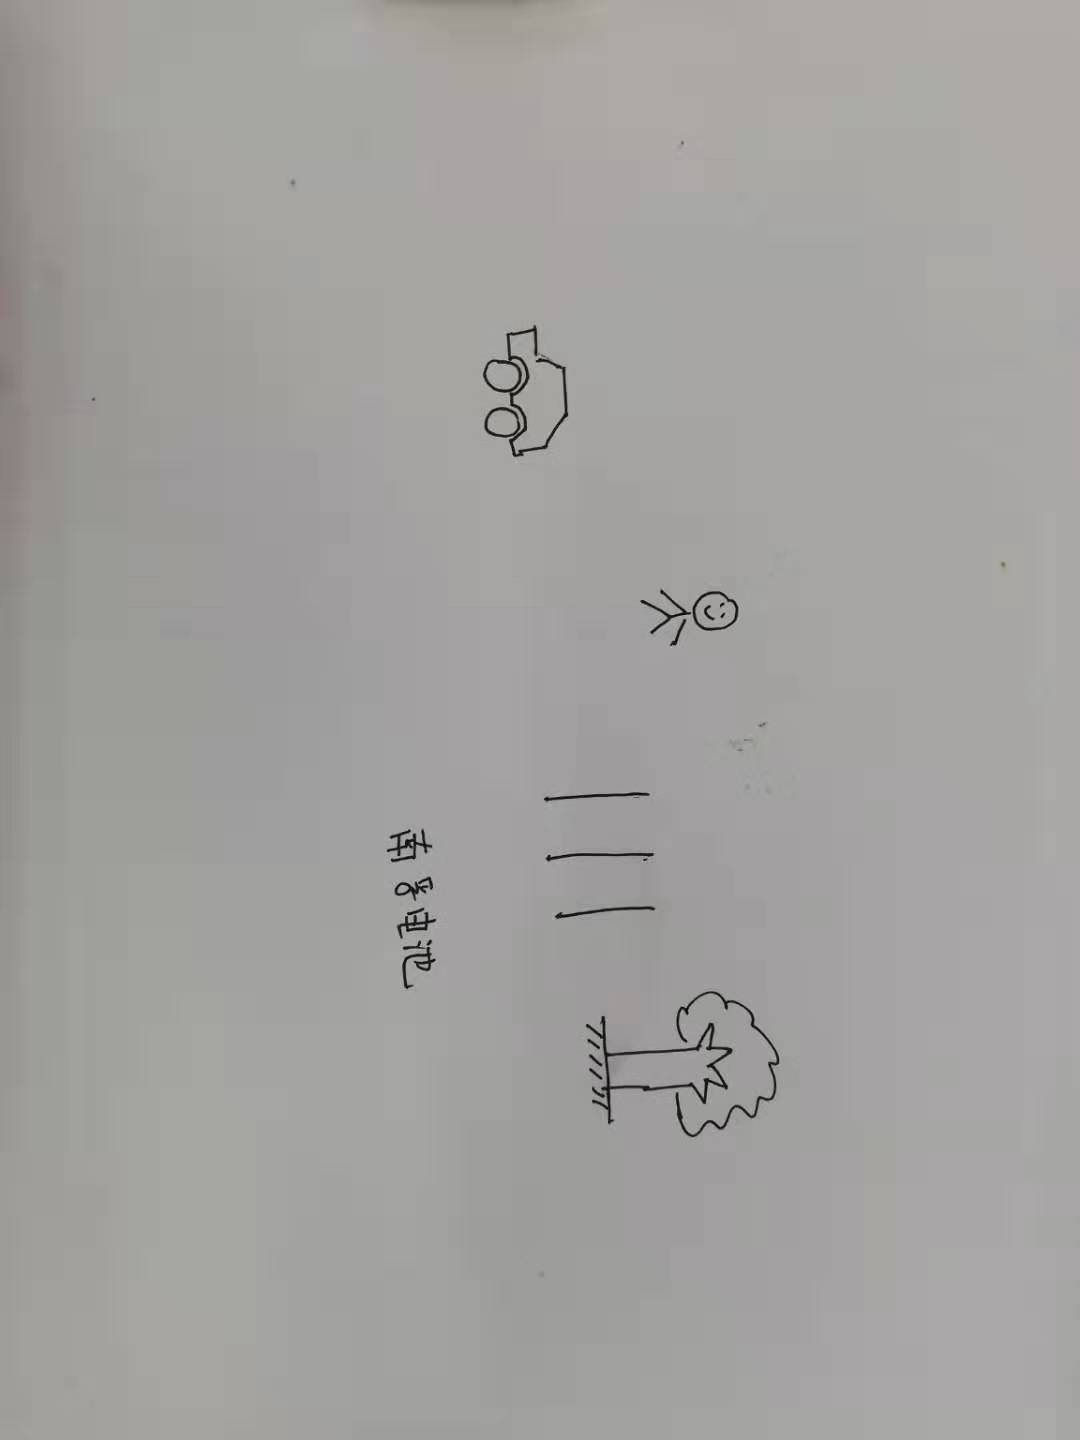 南孚电池